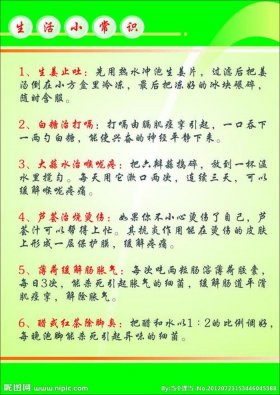 生活小常识
1、生姜止吐：先用热水冲泡生姜片，过滤后把姜
汤倒在小方盒里冷冻，最后把冻好的冰块碾碎，
随时含服。
2、白糖治打嗝：打嗝由膈肌痉挛引起，一口吞下
一两勺白糖，能使兴奋的神经平静下来。
3、大蒜水治喉咙疼：把六瓣蒜捣碎，放到一杯温
水里搅匀。每天用它漱口两次，连续三天，可以
缓解喉咙疼痛。
4、芦荟治烧烫伤：如果你不小心烫伤了自己，芦
荟汁可以帮得上忙。其抗炎作用能在烫伤的皮肤
上形成一层保护膜，缓解疼痛。
5、薄荷缓解肠胀气：每次吃两粒肠溶薄荷胶囊，
每日3次，能杀死引起胀气的细菌，缓解肠道平滑
肌痉挛，解除胀气。
6、醋或红茶除脚臭：把醋和水以1：2的比例调好，
每晚泡脚能杀死引起异味的细菌。
昵图网
www.nipic.com